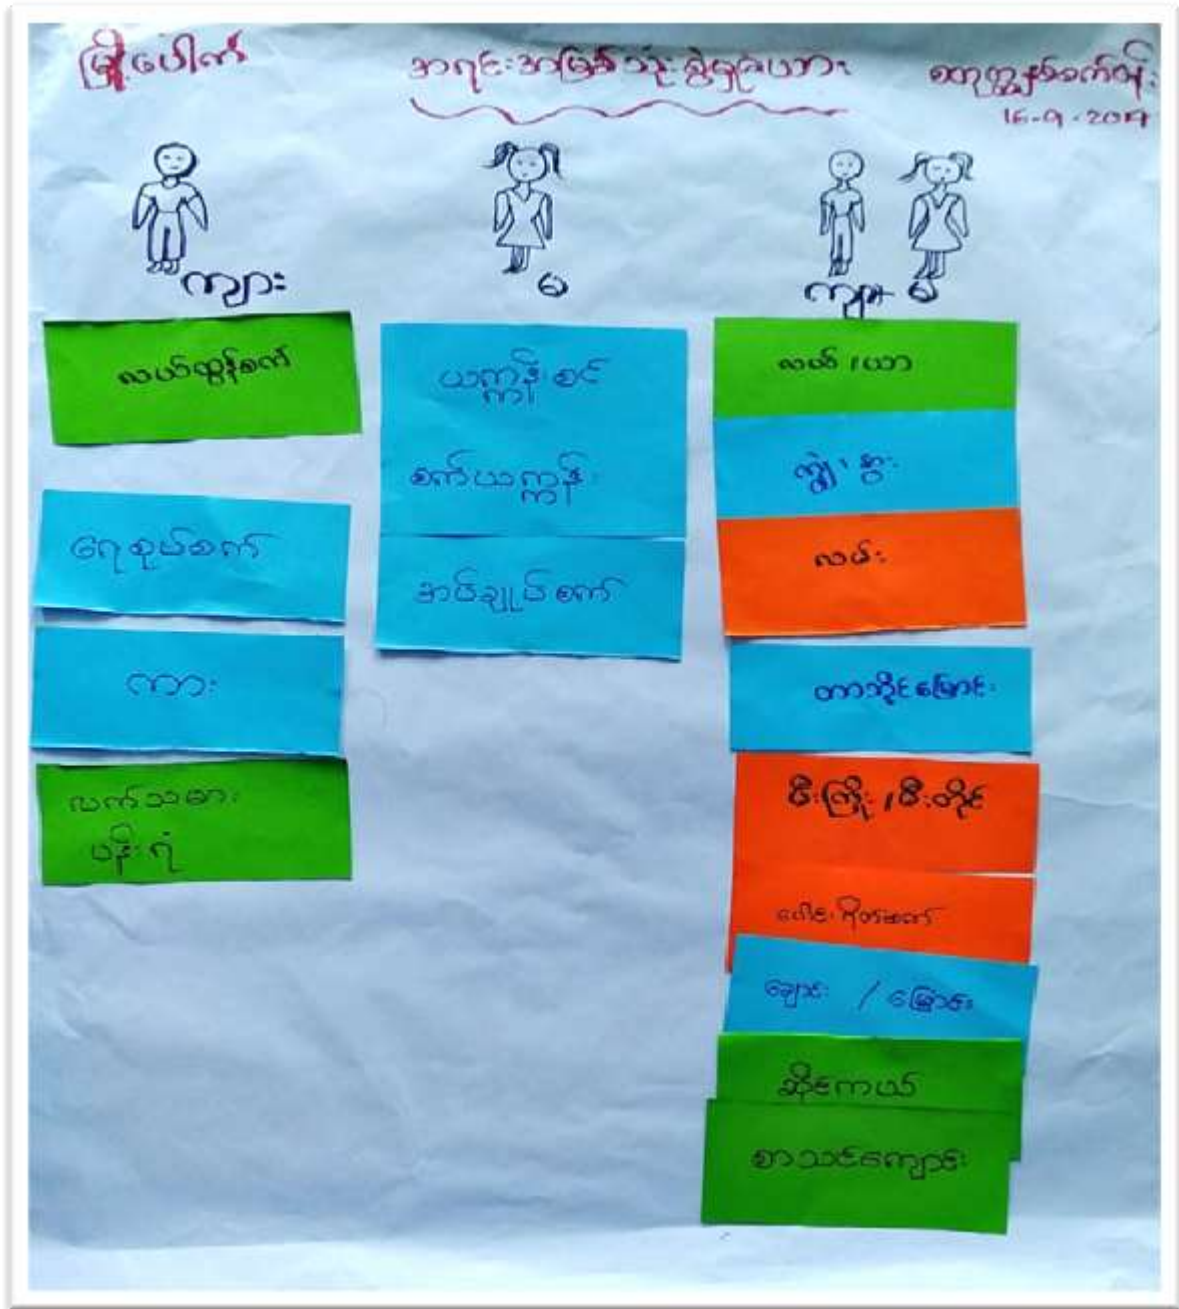 မြို့ပေါက်
အရင်းအမြစ်သုံးစွဲမှုဇယား
16-9-2017
ကျား
မ
ကျား မ
လယ်ထွန်စက်
ရေစုပ်စက်
ကား
လက်သမား
ပန်းရံ
ယက္ကန်းစင်
စက်ယက္ကန်း
အပ်ချုပ်စက်
လယ် / ယာ
ကျွဲ၊ နွား
လမ်း
တာဘိုင်မြောင်း
မီးကြိုး / မီးတိုင်
ချောင်း / မြောင်း
ဆိုင်ကယ်
စာသင်ကျောင်း